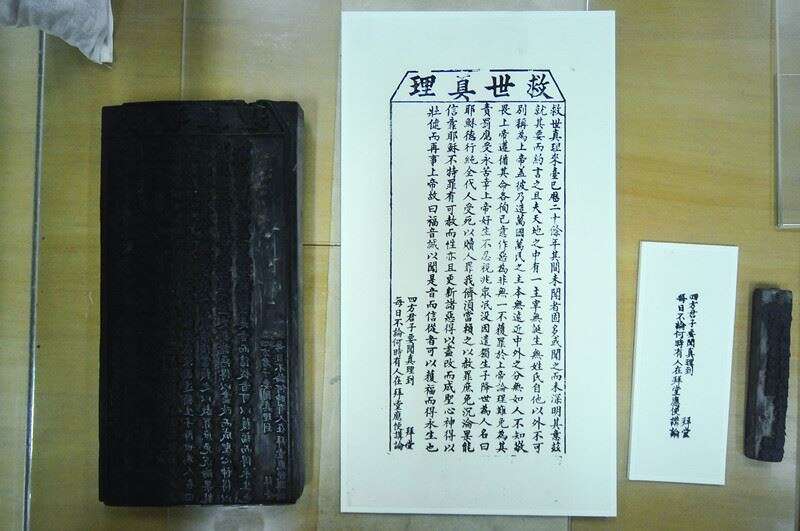 救世真理
救世真理來臺已歷二十餘年其間未聞者固多或聞之而未深明其意茲
就其要而約言之且夫天地之中有一主宰無誕生無姓氏自他以外不可
別稱為上帝蓋彼乃造萬國萬民之主本無遠近中外之分無如人不知敬
畏上帝遵循其命各徇己意作惡為非無一不獲罪於上帝論理難免為其
責罰應受永苦幸上帝好生不忍視兆衆泯沒因遣獨生子降世為人名曰
耶穌德行純全代人受死以贖人罪我儕須當賴之以赦罪庶免沉淪果能
信靠耶穌不特罪有可赦而性亦且更新諸惡得以盡改而成聖心神得以
壯健而再事上帝故曰福音誠以聞是音而信從者可以獲福而得永生也
四方君子要聞真理到 拜堂
每日不論何時有人在拜堂應便講論
四方君子要聞真理到 拜堂
每日不論何時有人在拜堂應便講論